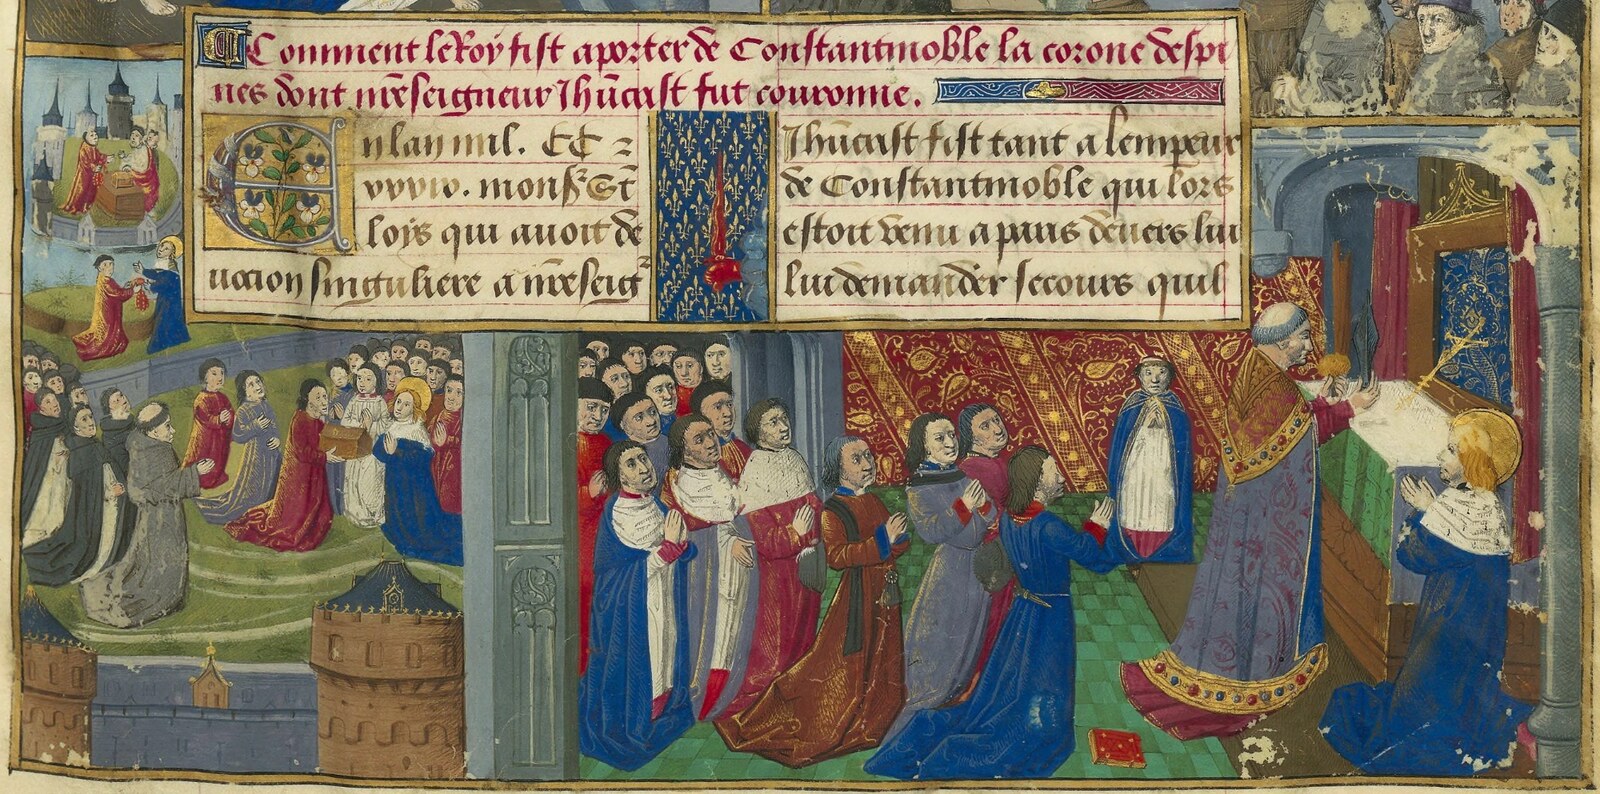 Comment le Roy fist aporter de Constantinoble la corone despi
nes dont nr̃e seigneur Jhũcrist fut couronne.
En lan mil. CC
xxxix. mons᷑ St
Lois qui auoit de
uocion singuliere a nr̃e seig᷑
Jhũcrist fist tant a lempeur
de Constantinoble qui lors
estoit venu a paris deuers lui
lui demander secours quil